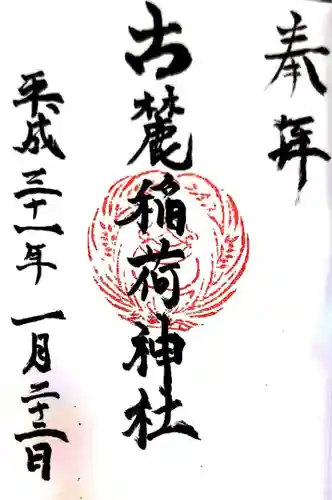 奉拝
古麓稲荷神社
平成三十一年一月二十二日